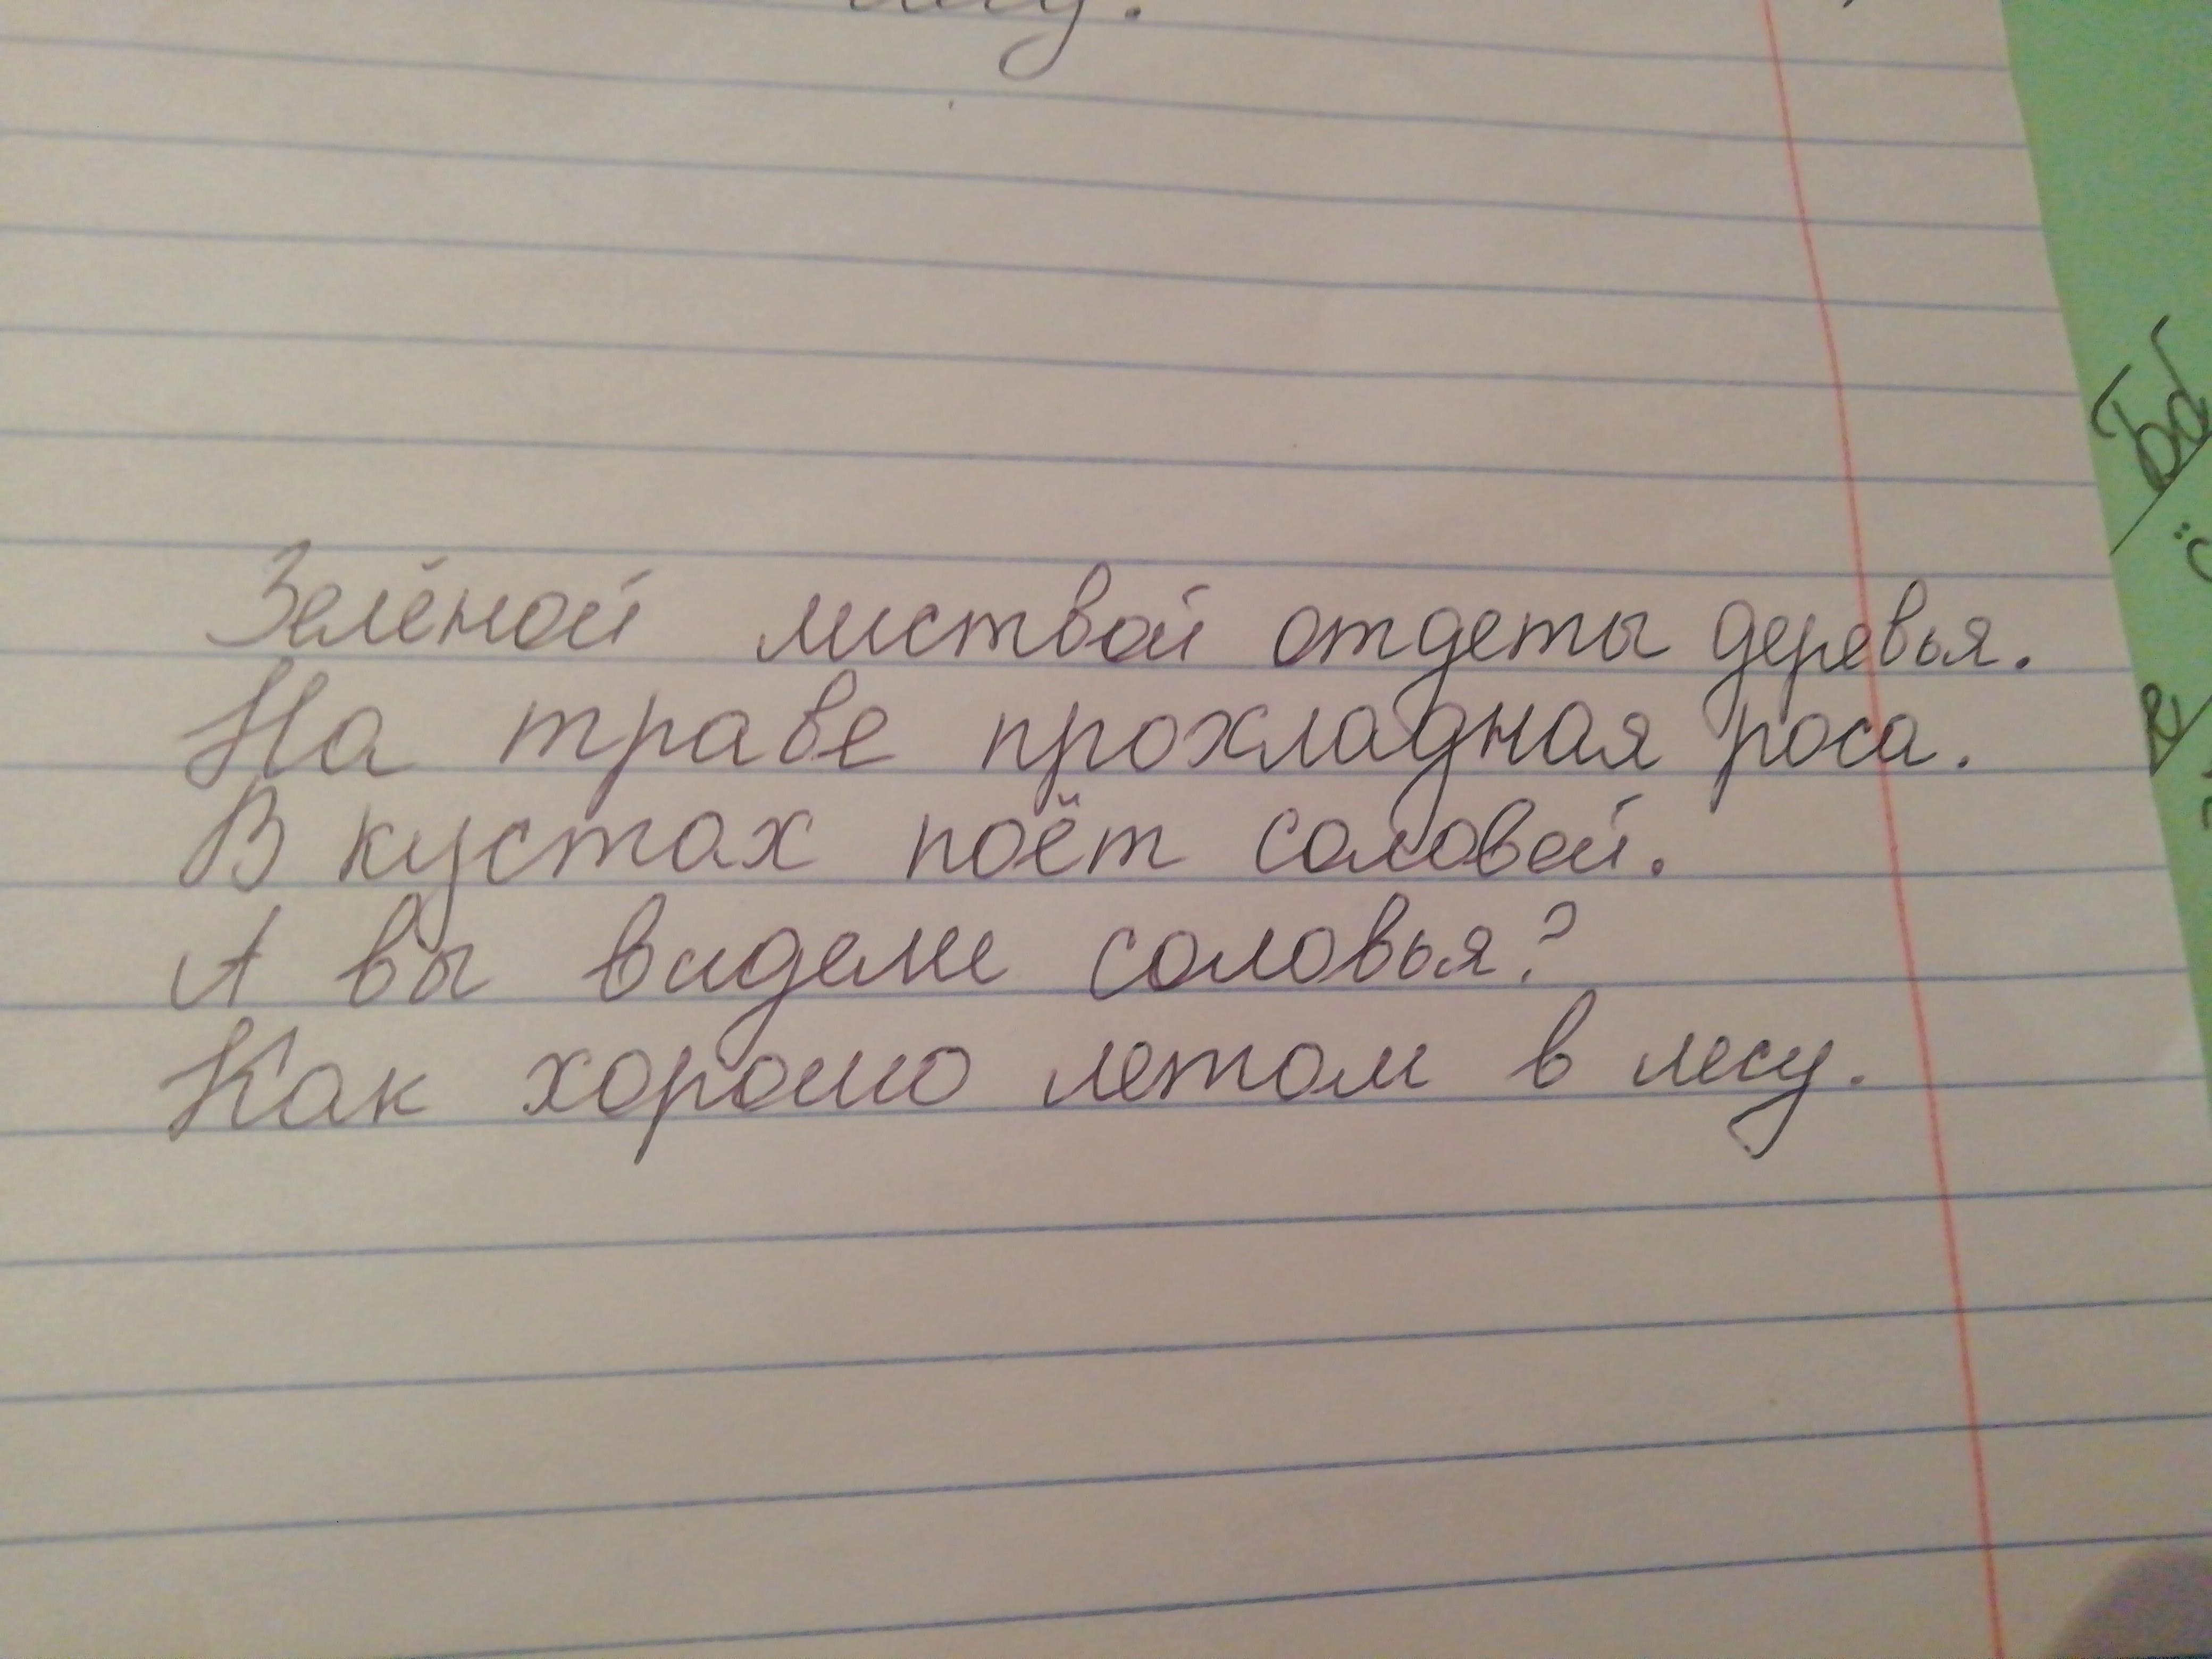 Зелёной листвой отдеты деревья.
На траве прохладная роса.
В кустах поёт соловей.
А вы видели соловья?
Как хорошо летом в лесу.